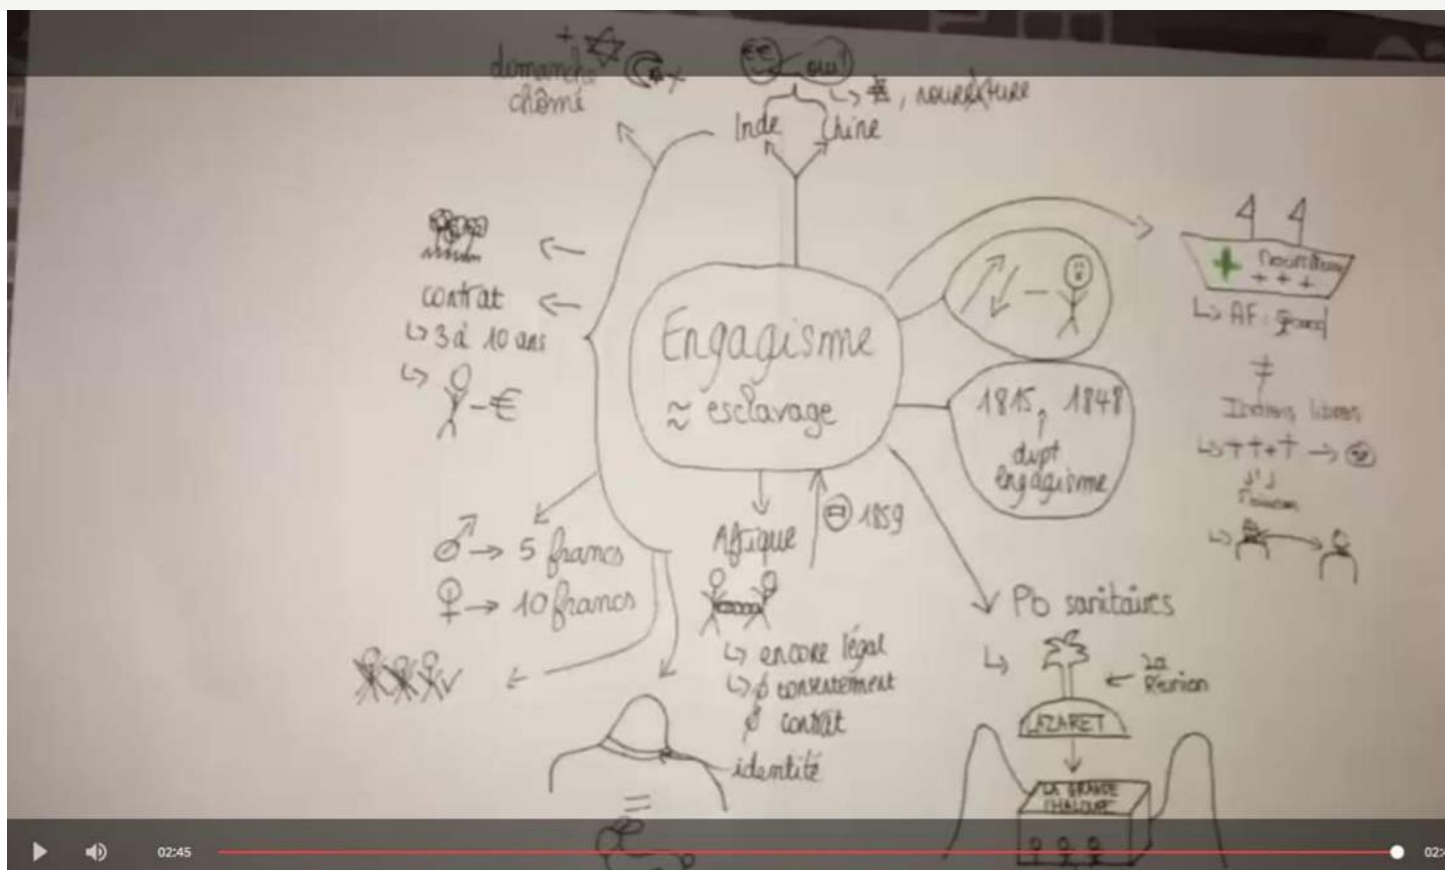 dimanche
chômé
oui!
nourriture
Inde
Chine
contrat
↳ 3 à 10 ans
€
Engagisme
≈ esclavage
1815, 1848
dvpt
engagisme
↳ AF: grand
≠
Indiens libres
♂ → 5 francs
♀ → 10 francs
Afrique
1859
↳ encore légal
↳ ∅ consentement
∅ contrat
identité
=
Pb sanitaires
La
Réunion
LAZARET
LA GRANDE
CHALOUPE
02:45